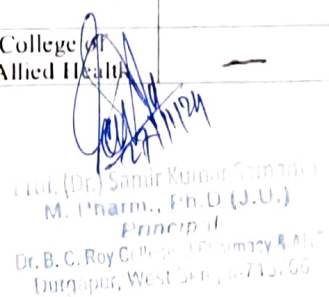 College of
Allied Health
27/11/24
Prof. (Dr.) Samir Kumar Samanta
M. Pharm., Ph.D (J.U.)
Principal
Dr. B. C. Roy College of Pharmacy &
Durgapur, West